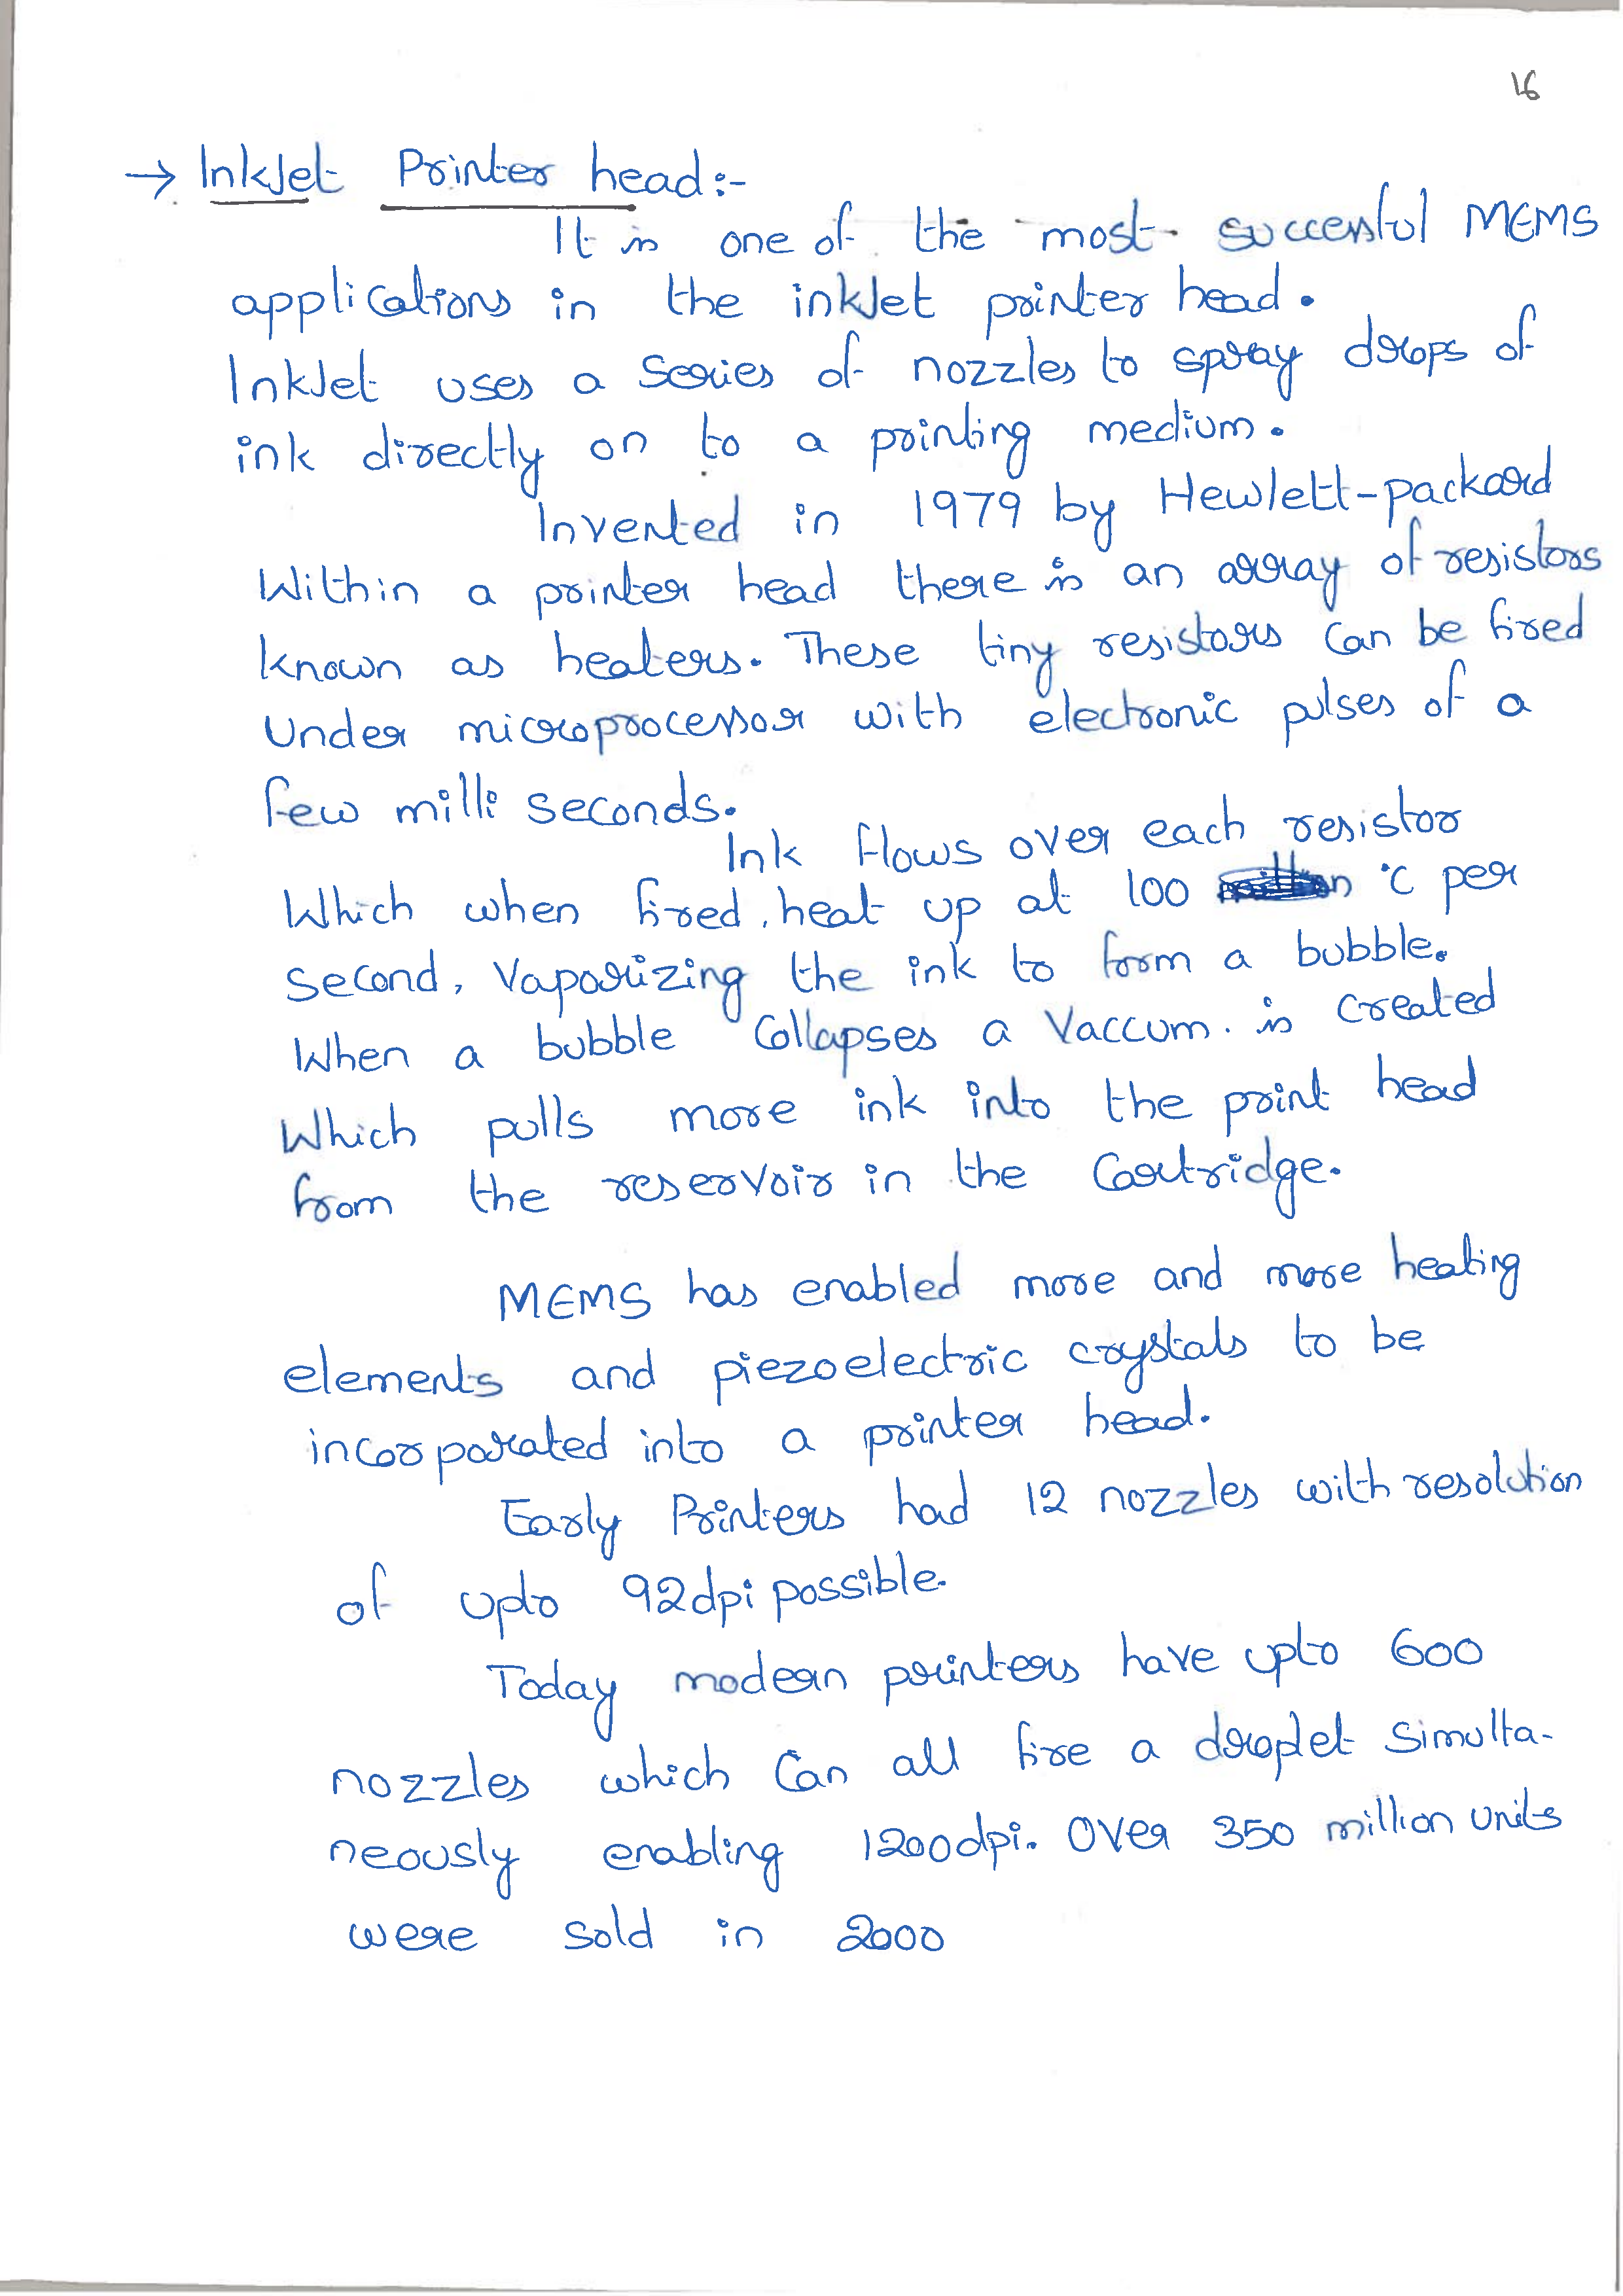 16
→ InkJet Printer head:-
It is one of the most successful MEMS
applications in the inkJet printer head.
InkJet uses a series of nozzles to spray drops of
ink directly on to a printing medium.
Invented in 1979 by Hewlett-packard
Within a printer head there is an array of resistors
known as heaters. These tiny resistors can be fired
Under microprocessor with electronic pulses of a
few milli seconds.
Ink flows over each resistor
Which when fired, heat up at 100 °C per
second, Vaporizing the ink to form a bubble.
When a bubble Collapses a Vaccum. is created
Which pulls more ink into the print head
from the reservoir in the Cartridge.
MEMS has enabled more and more heating
elements and piezoelectric crystals to be
incorporated into a printer head.
Early Printers had 12 nozzles with resolution
of upto 92dpi possible.
Today modern printers have upto 600
nozzles which Can all fire a droplet Simulta-
neously enabling 1200dpi. Over 350 million units
were sold in 2000